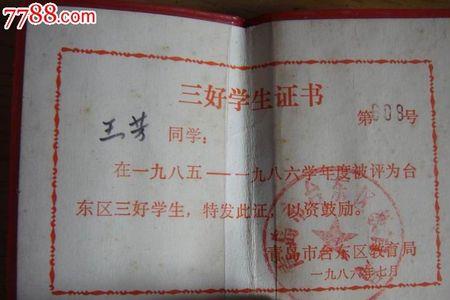 7788.com
三好学生证书
第008号
王芳 同学：
在一九八五——一九八六学年度被评为台
东区三好学生，特发此证，以资鼓励。
青岛市台东区教育局
一九八六年七月